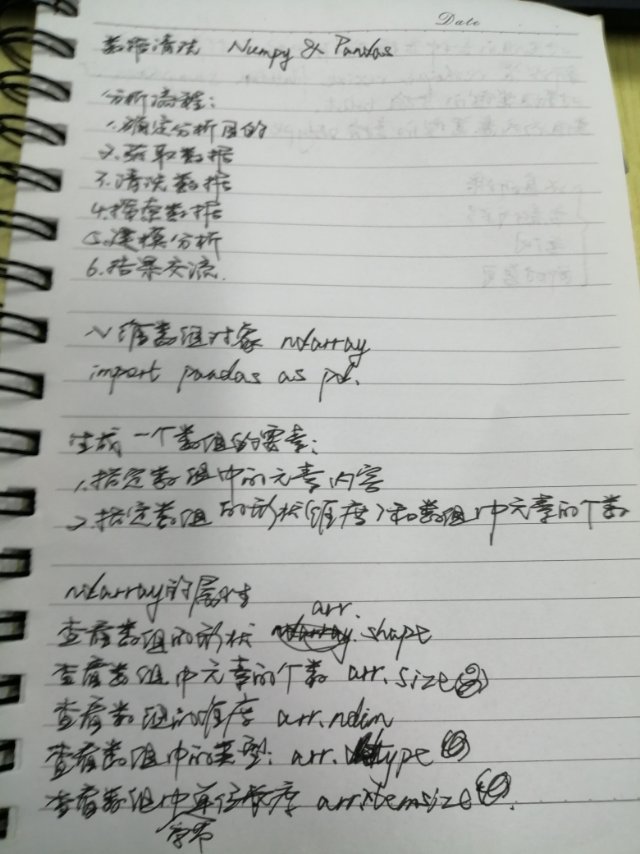 Date
数据清洗 Numpy & Pandas
分析流程：
1.确定分析目的
2.获取数据
3.清洗数据
4.探索数据
5.建模分析
6.结果交流.
N维数组对象 ndarray
import pandas as pd.
生成一个数组的要素：
1.指定数组中的元素内容
2.指定数组的形状(维度)和数组中元素的个数
ndarray的属性
arr.
查看数组的形状 .shape
查看数组中元素的个数 arr.size
查看数组的维度 arr.ndim
查看数组中的类型: arr.dtype
查看数组中单位长度 arr.itemsize
字节